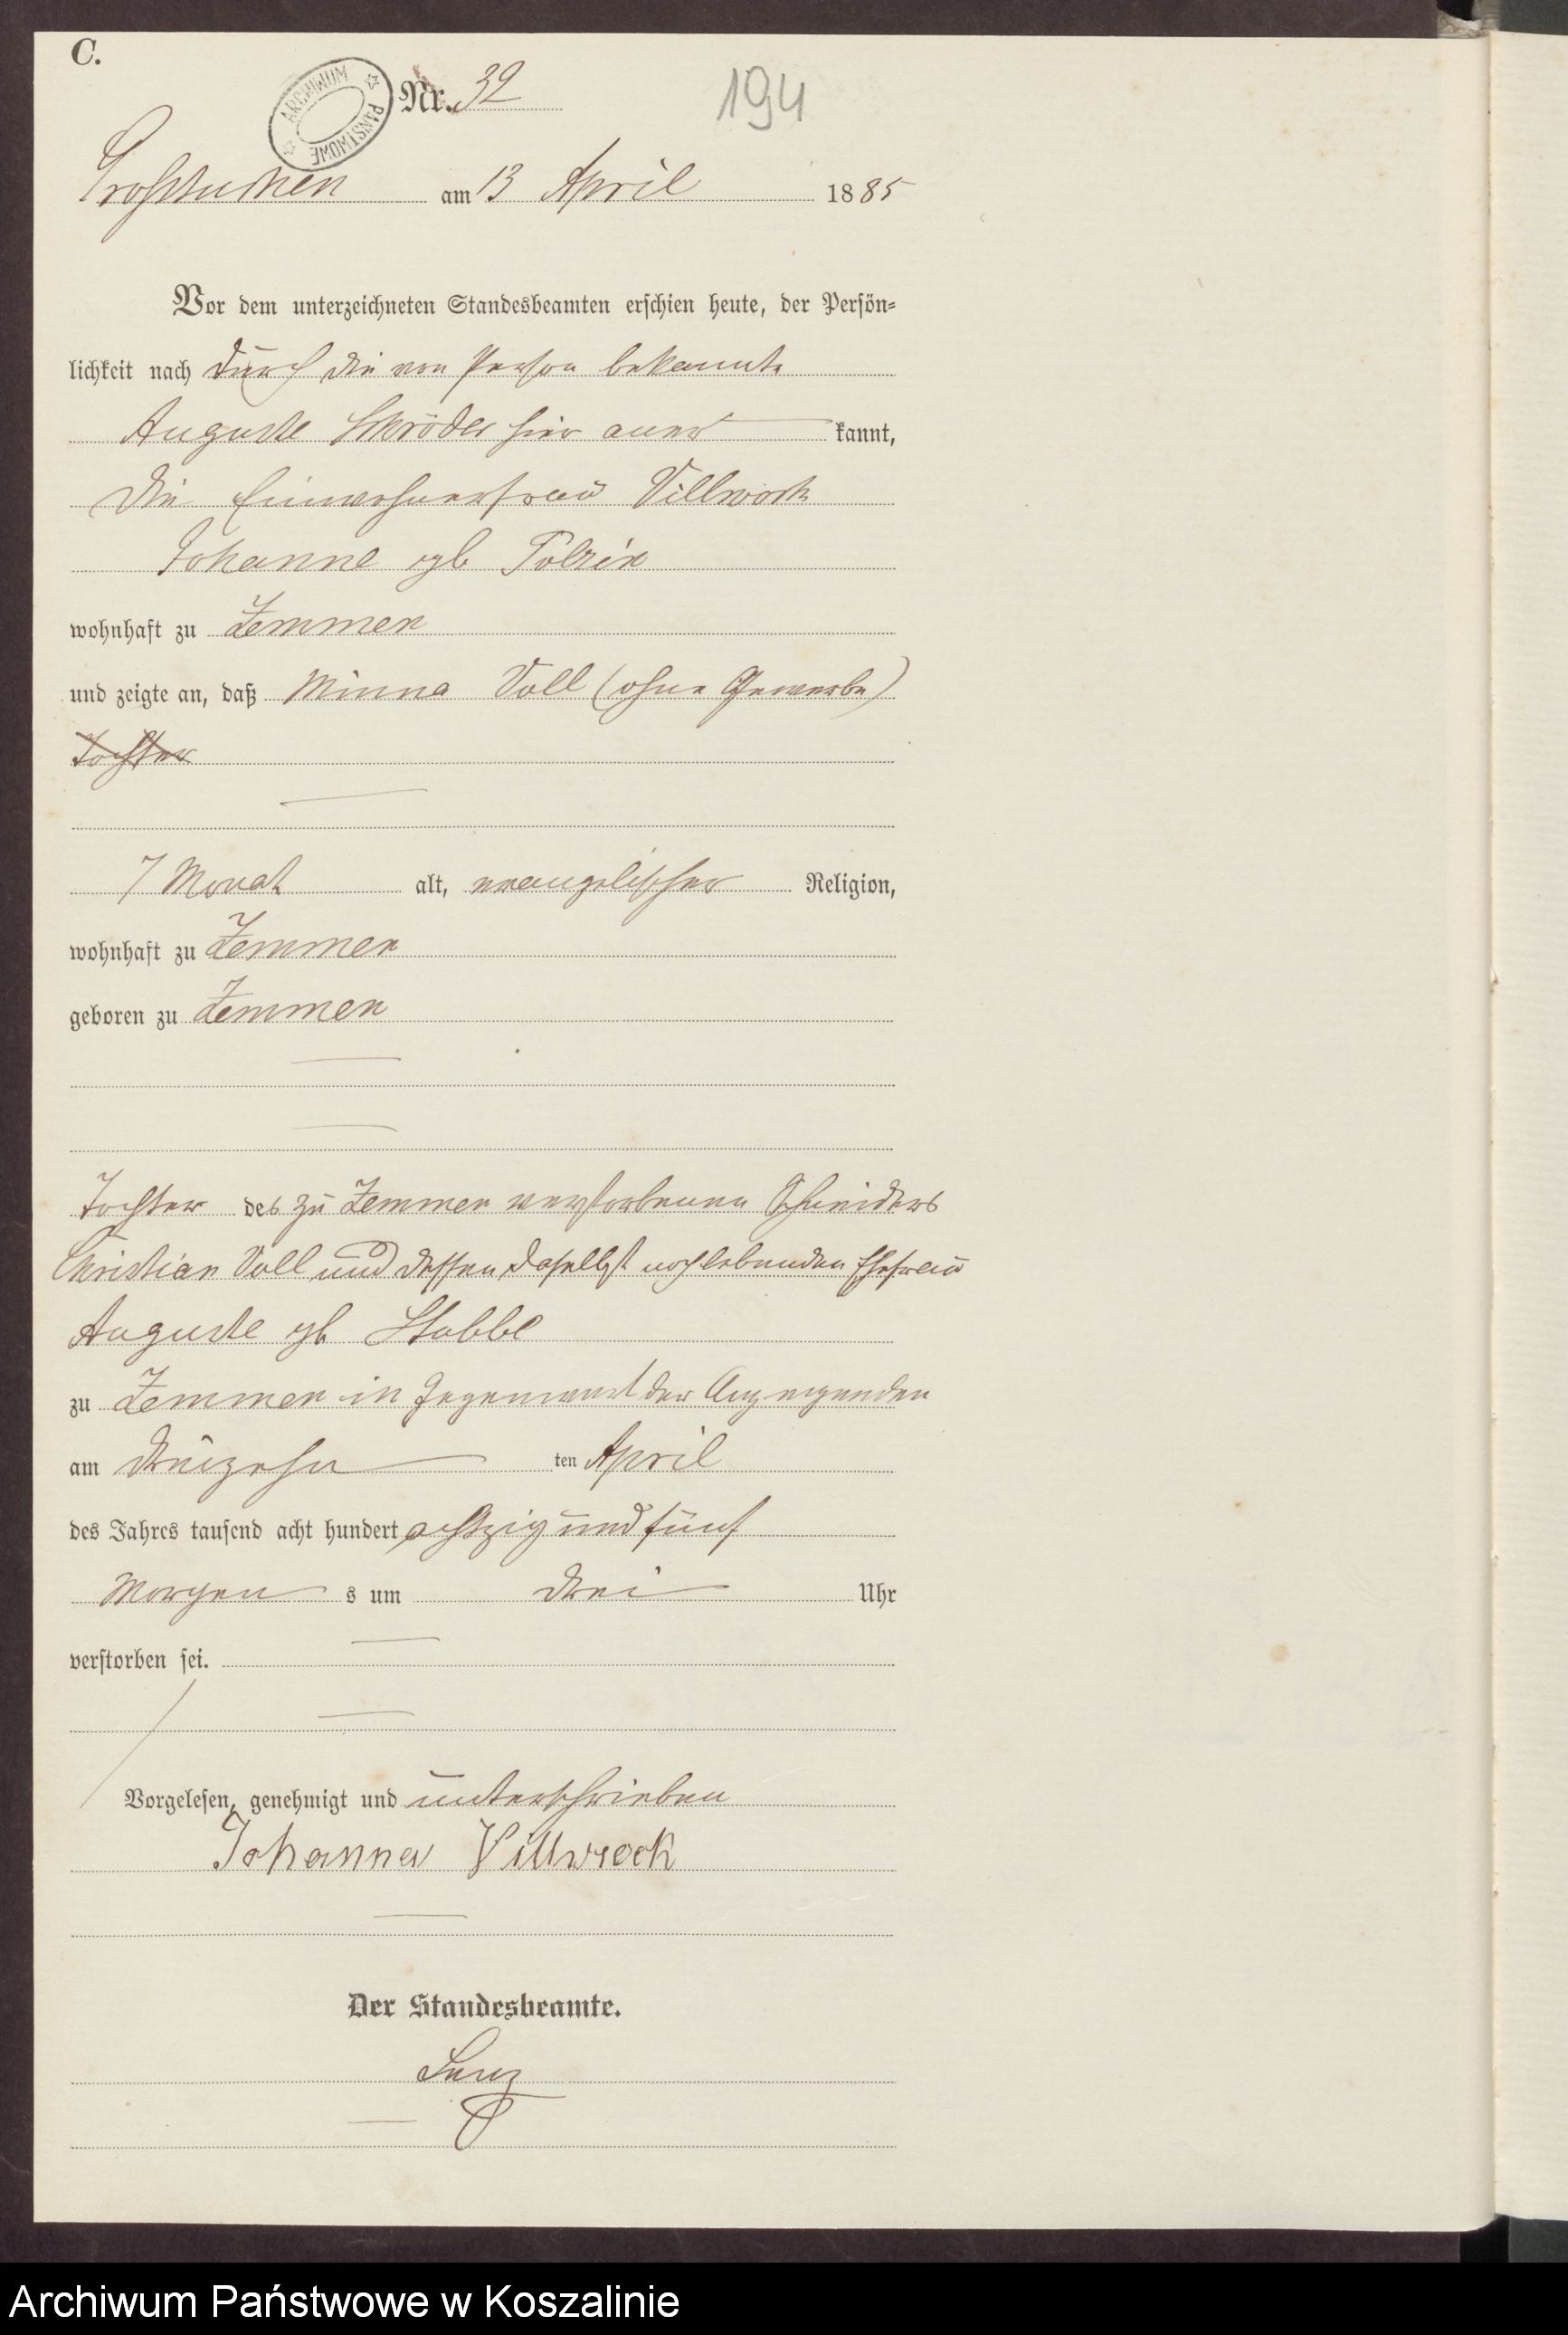 C.
ARCHIWUM PAŃSTWOWE
Nr. 32
194
Großtuchen am 13 April 1885
Vor dem unterzeichneten Standesbeamten erschien heute, der Persön=
lichkeit nach durch die von Person bekannte
Auguste Schröder hier aner kannt,
die Einwohnerfrau Villwock
Johanne geb Polzin
wohnhaft zu Zemmen
und zeigte an, daß Minna Voll (ohne Gewerbe)
Tochter
7 Monat alt, evangelischer Religion,
wohnhaft zu Zemmen
geboren zu Zemmen
Tochter des zu Zemmen verstorbenen Schneiders
Christian Voll und dessen daselbst noch lebenden Ehefrau
Auguste gb Stabbe
zu Zemmen in Gegenwart der Anzeigenden
am dreizehn ten April
des Jahres tausend acht hundert achtzig und fünf
Morgen s um drei Uhr
verstorben sei.
Vorgelesen, genehmigt und unterschrieben
Johanna Villwock
Der Standesbeamte.
Lenz
Archiwum Państwowe w Koszalinie